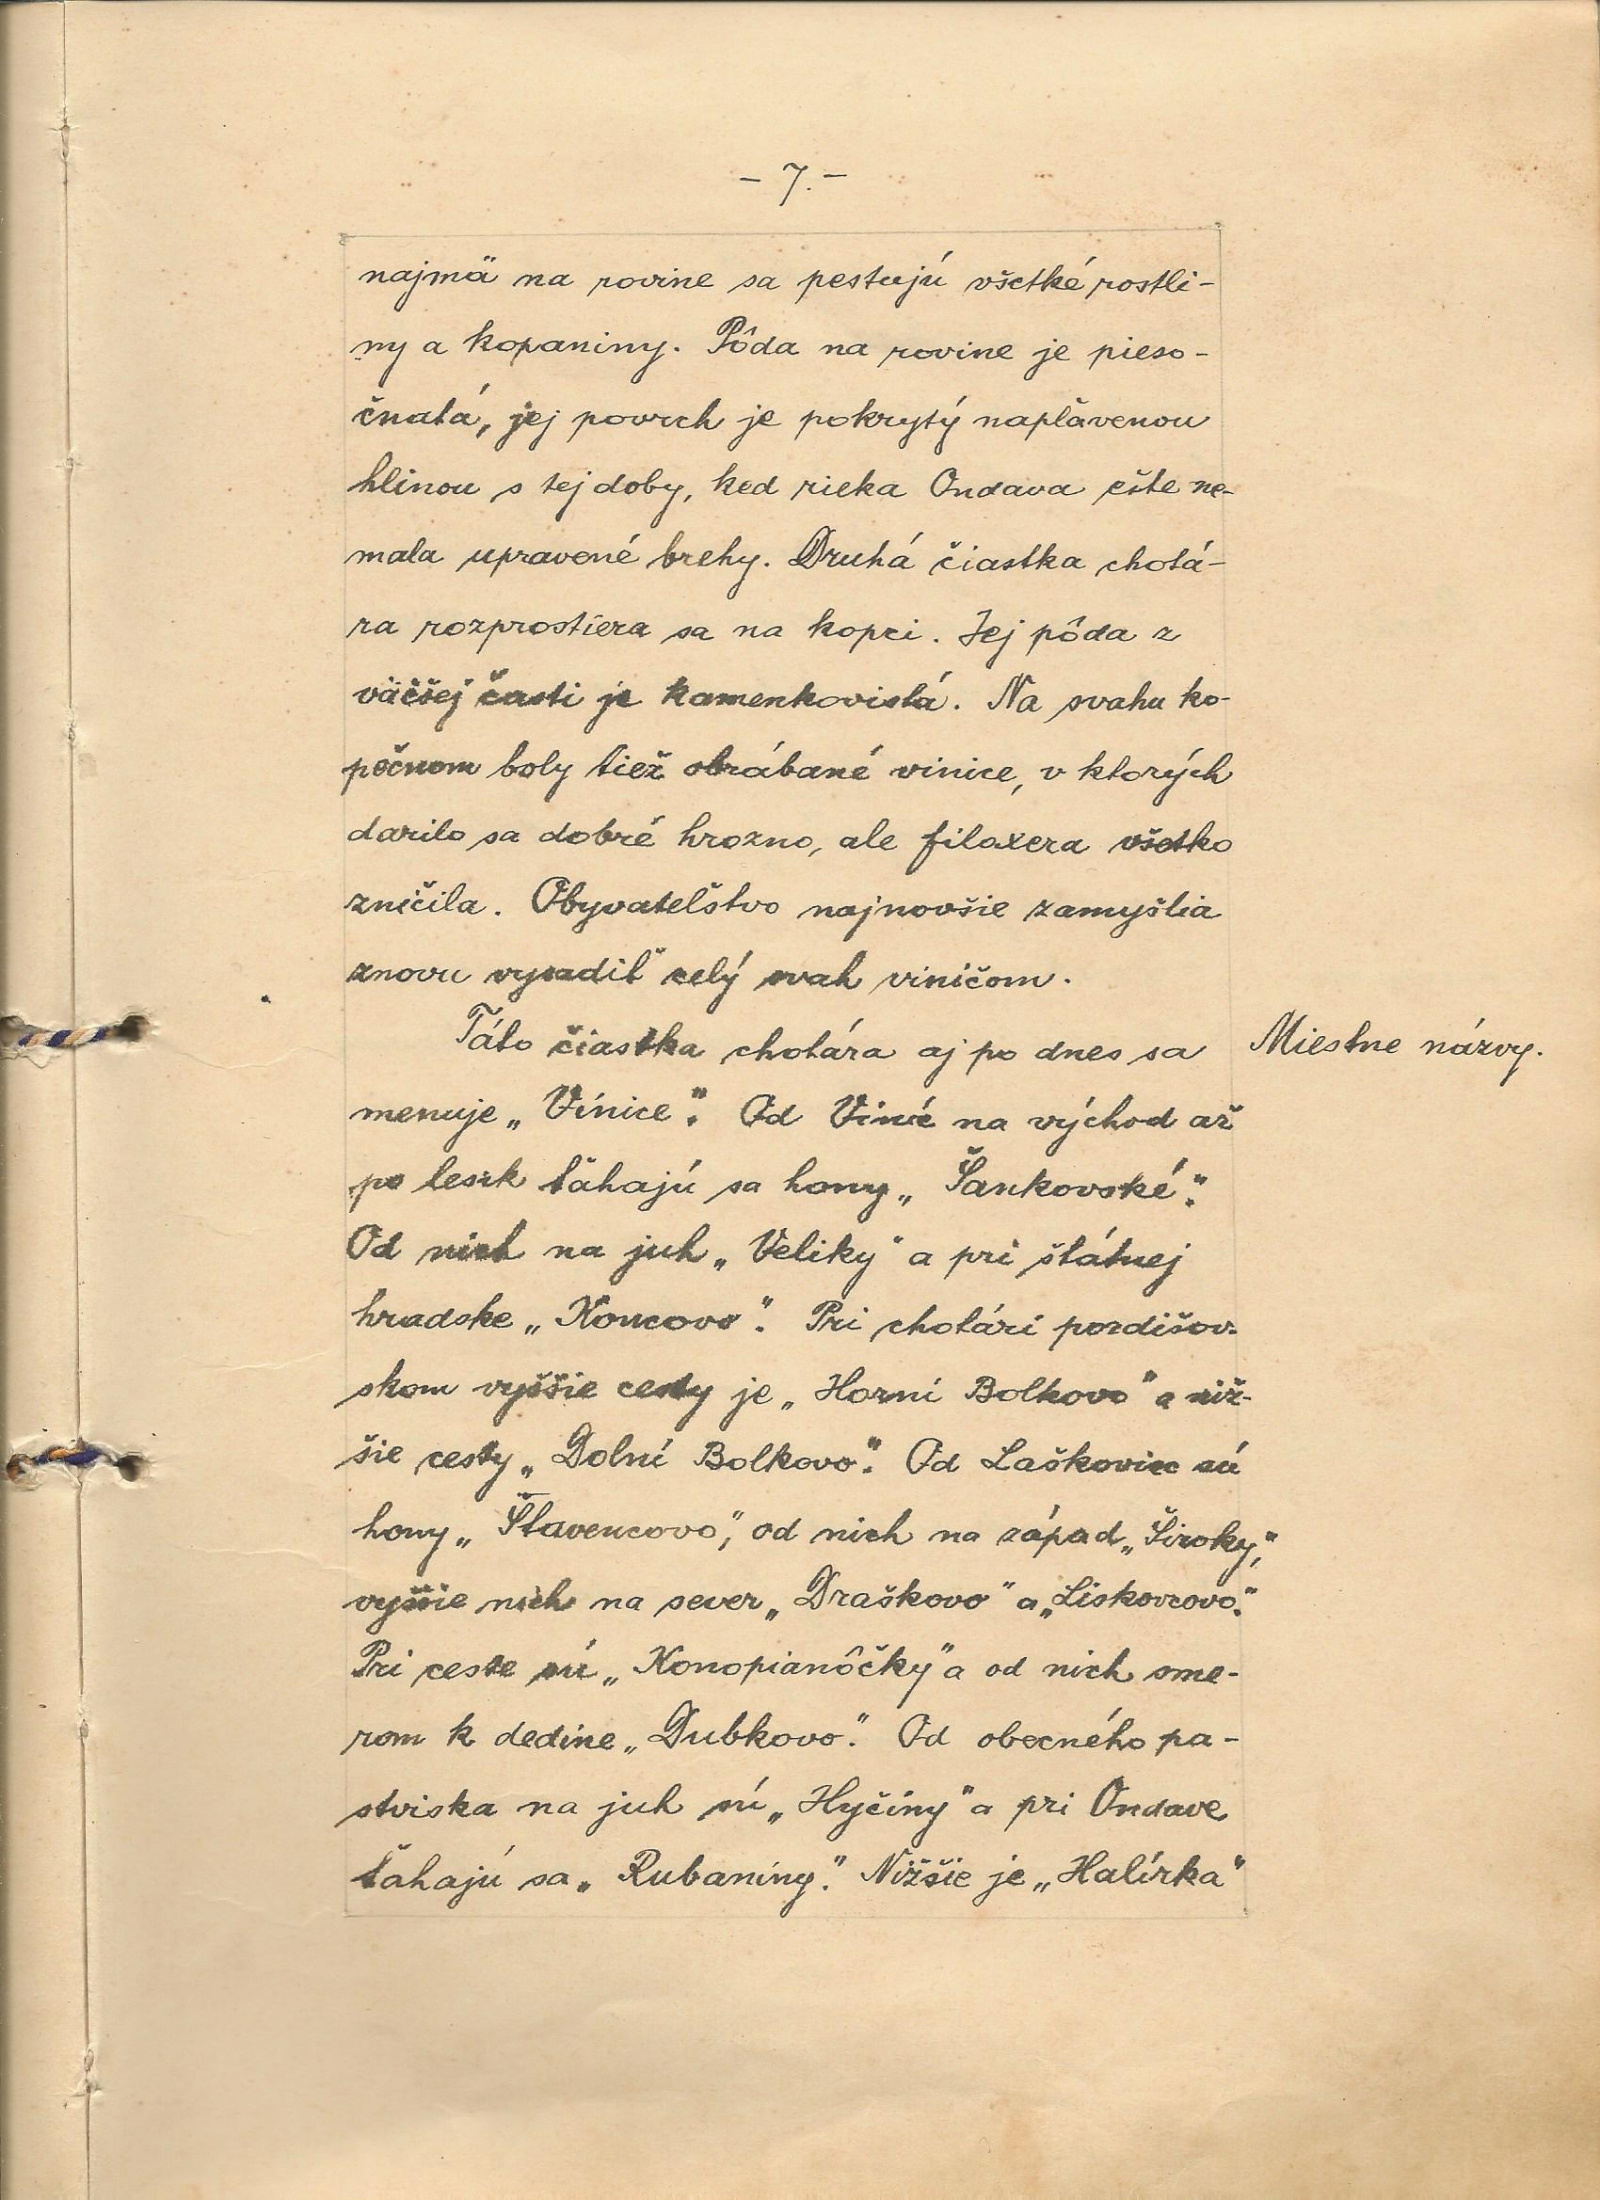 - 7. -
najmä na rovine sa pestujú všetké rostli-
ny a kopaniny. Pôda na rovine je pieso-
čnatá, jej povrch je pokrytý naplavenou
hlinou s tej doby, ked rieka Ondava ešte ne-
mala upravené brehy. Druhá čiastka chotá-
ra rozprostiera sa na kopci. Jej pôda z
väčšej časti je kamenkovistá. Na svahu ko-
pečnom boly tiež obrábané vinice, v ktorých
darilo sa dobré hrozno, ale filoxera všetko
zničila. Obyvateľstvo najnovšie zamyšlia
znovu vysadiť celý svah viničom.
Táto čiastka chotára aj po dnes sa
Miestne názvy.
menuje „Vinice". Od Viníc na východ až
po lesík ťahajú sa hony „Šankovské".
Od nich na juh „Veliky" a pri štátnej
hradske „Koncovo". Pri chotári pozdišov-
skom vyššie cesty je „Horní Bolkovo" a niž-
šie cesty „Dolní Bolkovo". Od Laškoviec sú
hony „Šťavencovo", od nich na západ „Široky",
vyššie nich na sever „Draškovo" a „Liskovcovo".
Pri ceste sú „Konopianôčky" a od nich sme-
rom k dedine „Dubkovo". Od obecného pa-
stviska na juh sú „Hyčíny" a pri Ondave
ťahajú sa „Rubaniny". Nižšie je „Halírka"